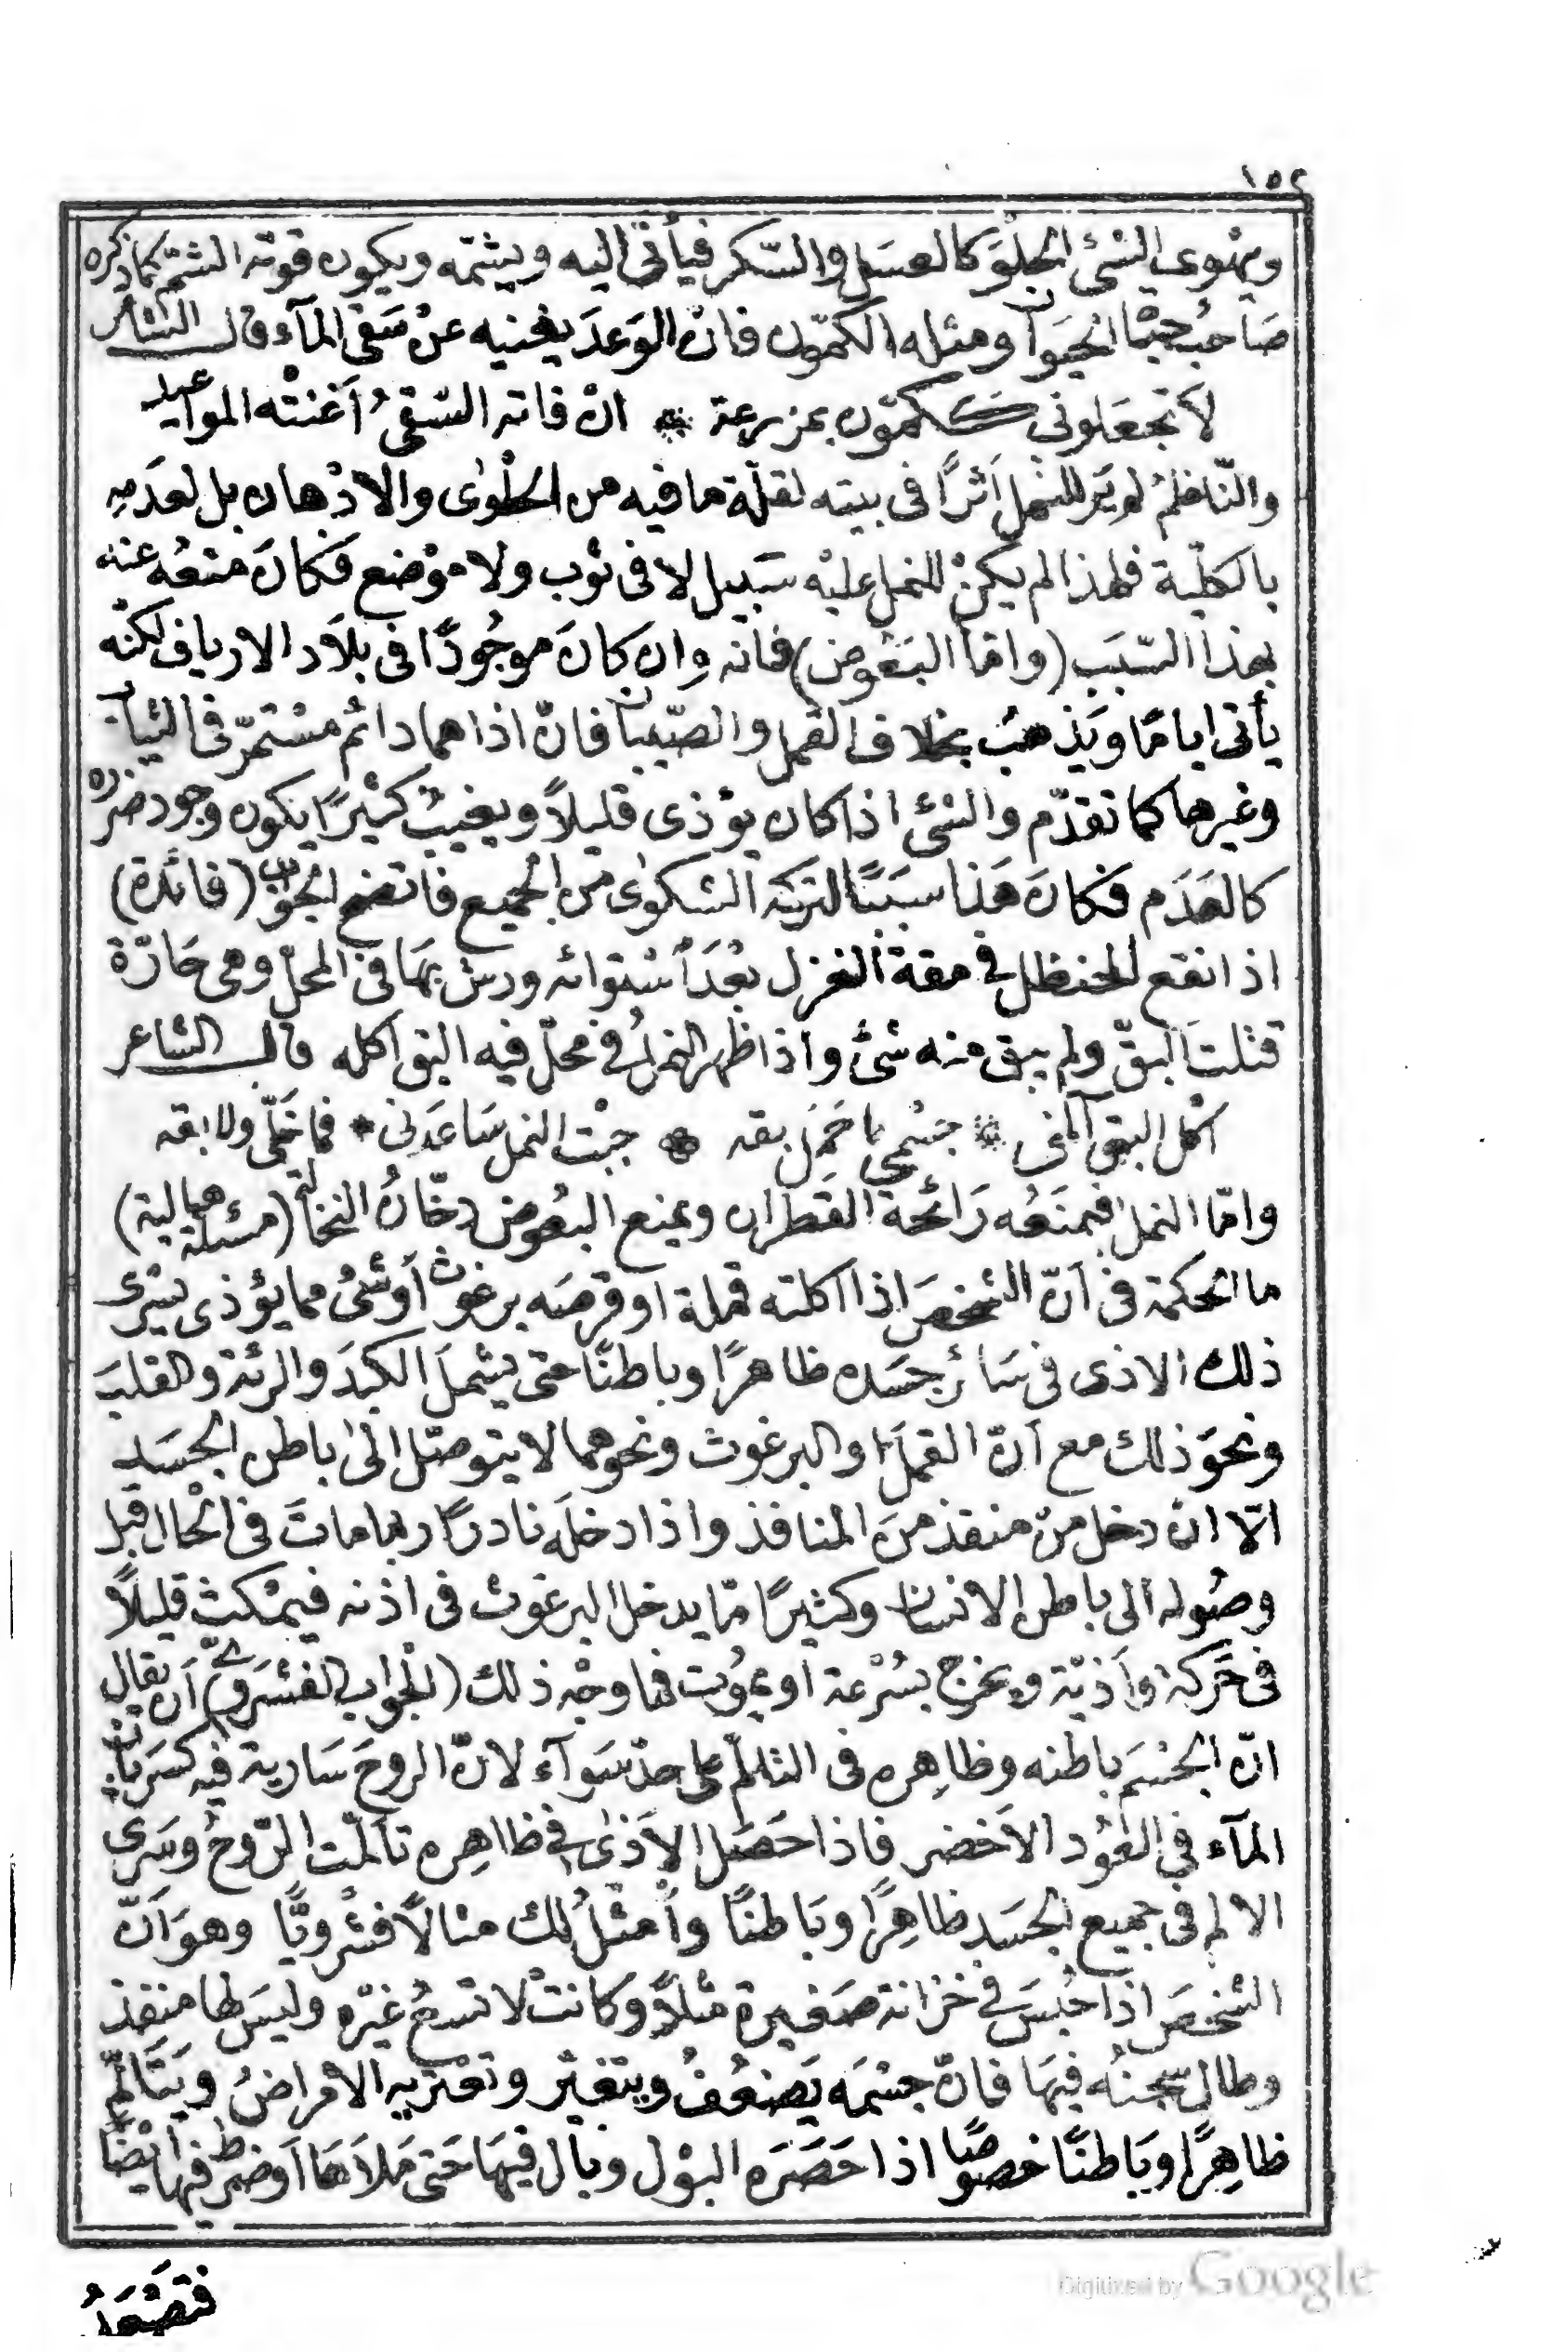 ١٥٤
ويهوى الشئ الحلو كالعسل والسكر فيأتى اليه ويشمّه ويكون قوته الشمّ كما ذكره
صَاحبُ حيَاة الحيَوان ومثله الكمّون فانّ الوَعدَ يغنيه عنْ سَقى المآء قال الشاعر
لا تجعَلونى ككمّون بمزرعة * انْ فاته السّقىُ أغنتْه المواعيد
والنّاظمُ لم يَر للنمل أثرًا فى بيته لقلّة ما فيه من الحلْوى والادْهان بل لعدَمِهِ
بالكليّة فلهذا لم يكنْ للنمل عليْه سَبيل لا فى ثوب ولا موْضع فكانَ منعُه عنه
بهذا السّبَب (وامّا البَعُوض) فانه وان كانَ موجُودًا فى بلاَد الارياف لكنّه
يأتى ايامًا ويَذهبُ بخلاف القمل والصّيبان فانّ اذاهما دائم مسْتمرّ فى الثياب
وغيرها كما تقدّم والشئ اذا كان يؤذى قليلاً ويغيبُ كثيرًا يكون وجود ضرره
كالعَدَم فكانَ هَذا سبَبًا لتركه الشكوٰى من الجميع فاتضح الجوَاب (فائدة)
اذا نقع الحنظل فى مقة الغزل بعْدَ اسْتوائه ورشّ بهَا فى المحلّ وهى حَارّة
قتلت البقّ ولم يبق منه شئ واذا ظهر النملُ فى محلّ فيه البق اكله قال الشاعر
اكل البق آلمنى * جسْمى يا خَىّ بقه * جبْت النمل سَاعَدنى * فما خَلّى ولا بقه
وامّا النمل فيمنَعُه رَائحة القَطران ويمنع البعُوض دخّانُ النخالة (مسئلة هبالية)
ما الحكمة فى أنّ الشخصَ اذا اكلته قملة او قرصَه برغوث أوْ شئُ مما يؤذى يسْرى
ذلك الاذى فى سَائر جسَده ظاهرًا وباطنًا حتى يشملَ الكبدَ والرئة والقلبَ
ونحوَ ذلك مع أنّ القملَ والبرغوث ونحوهما لا يتوصّل الى باطن الجسَد
الاّ انْ دخل منْ منفذ منَ المنافذ واذا دخلَ نادرًا ربما ماتَ فى الحال قبل
وصُوله الى باطن الانسان وكثيرًا مّا يدخل البرغوث فى اذنه فيمْكث قليلاً
فى حَركة وأذيّة ويخرج بسُرْعة او يموُت فما وجْه ذلك (الجواب الفشرَوىّ) أن يقال
انّ الجسْمَ باطنه وظاهِره فى التألّم على حدّ سَوآء لانّ الروحَ سَارية فيه كسَرَيان
المآء فى العُود الاخضر فاذا حصَل الاَذٰى فى ظاهِره تألمّت الرّوحُ وسَرى
الالم فى جميع الجسَد ظاهِرًا وبَاطنًا وأمثلُ لك مثالاً فشرويًّا وهوَ أنّ
الشخصَ اذا حُبسَ فى خزانة صَغيرة مثلاً وكانتْ لا تسعُ غيْره وليسَ لها منفذ
وطال سجنُه فيهَا فانّ جسْمَه يَضعُفُ ويتغيّر وتعْتريه الامْراضُ ويتَألّم
ظاهِرًا وبَاطنًا خصوصًا اذا حَصَرَه البوْل وبال فيهَا حَتى مَلاَهَا أوضرط فيها أيْضًا